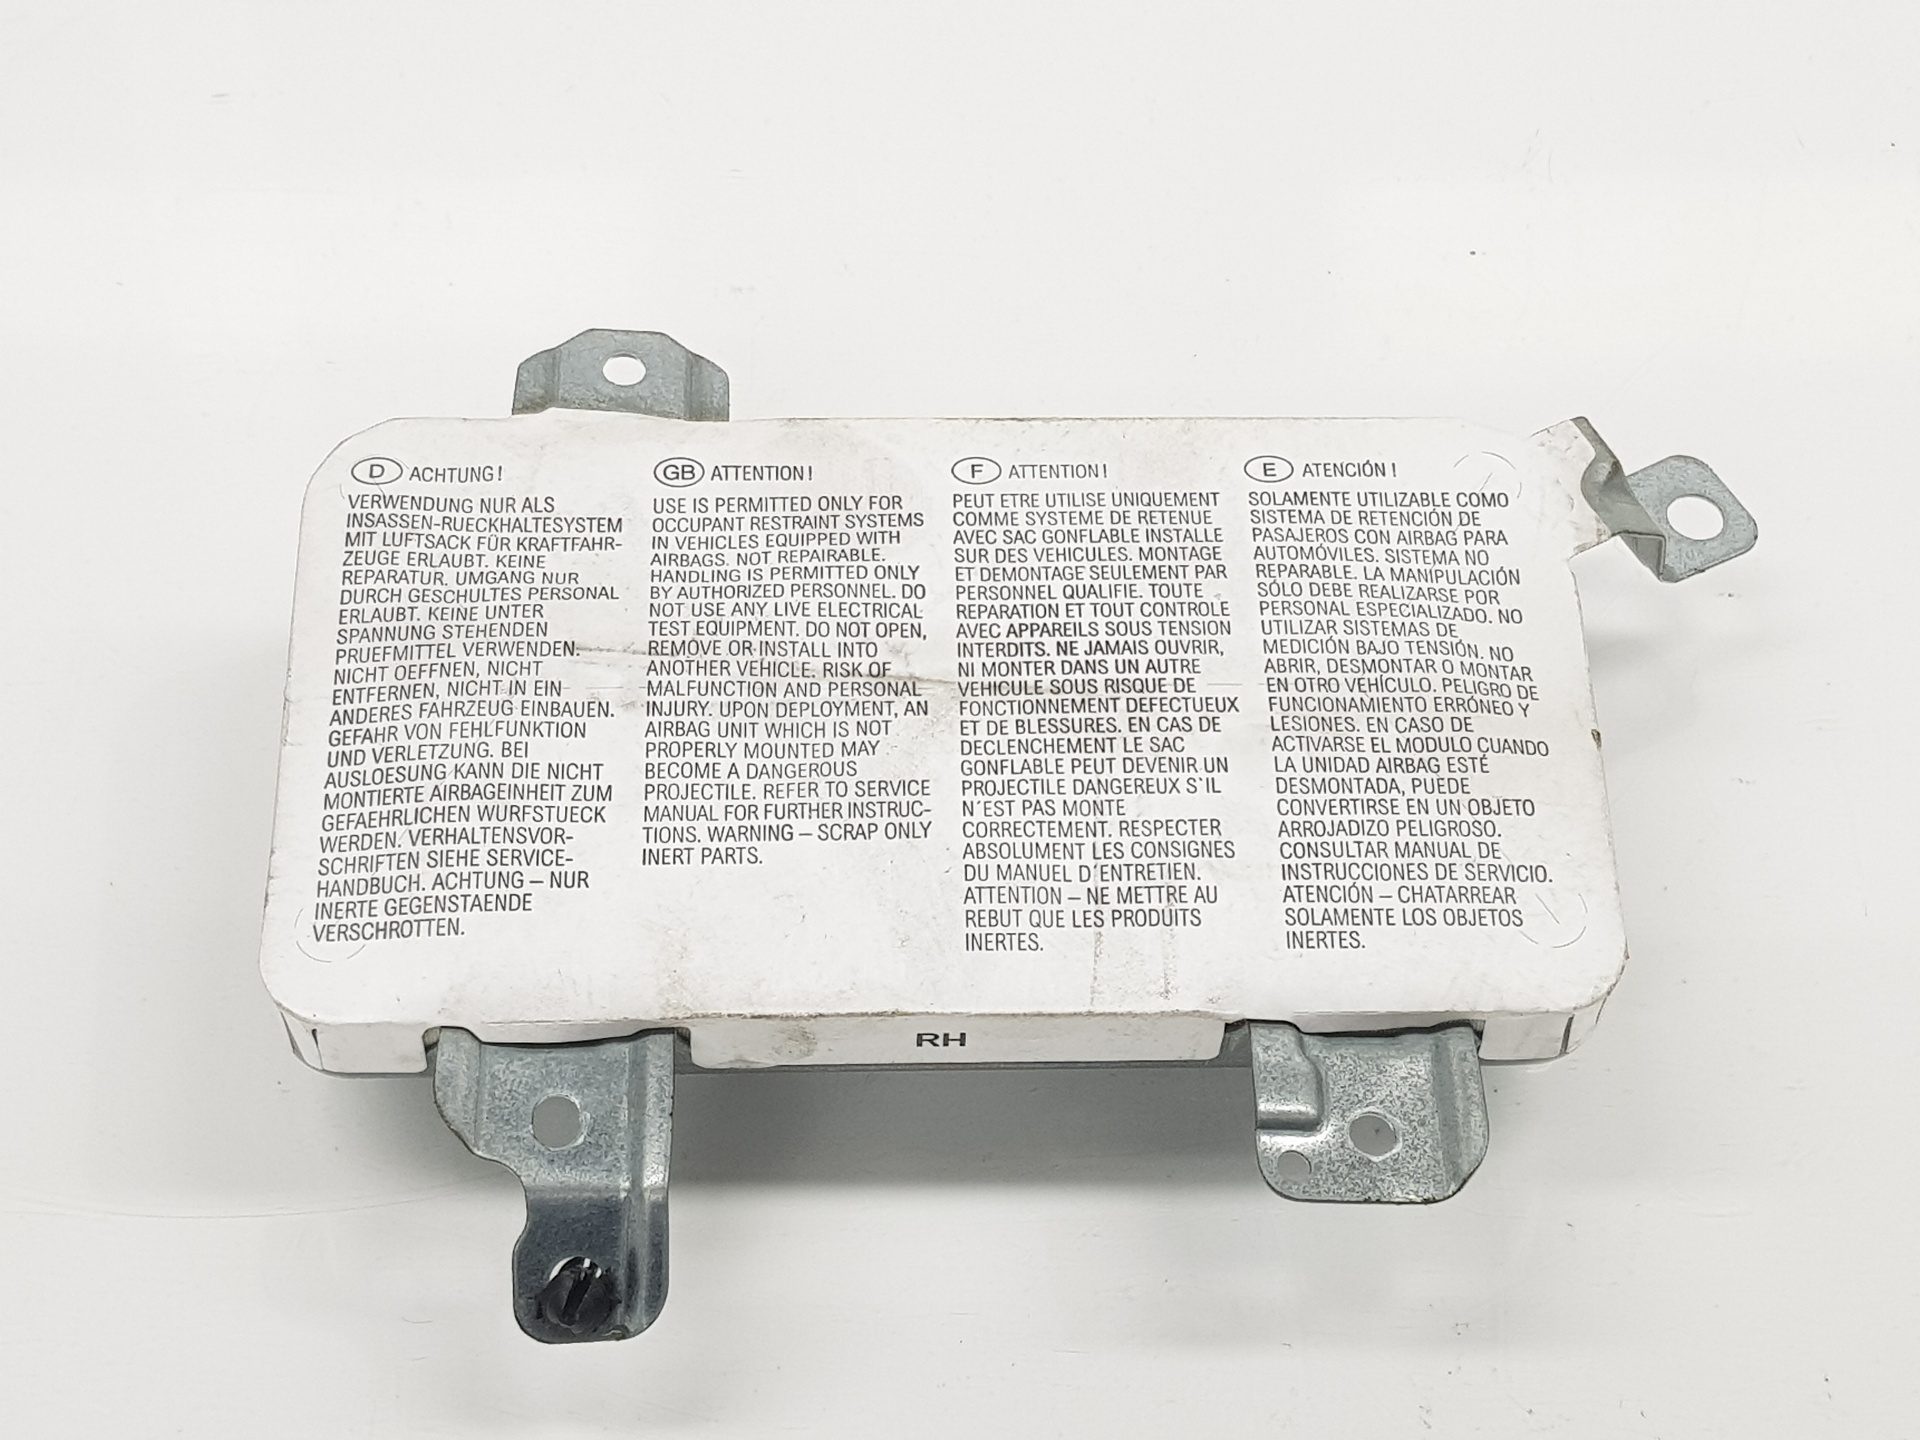 D ACHTUNG!
VERWENDUNG NUR ALS
INSASSEN-RUECKHALTESYSTEM
MIT LUFTSACK FÜR KRAFTFAHR-
ZEUGE ERLAUBT. KEINE
REPARATUR. UMGANG NUR
DURCH GESCHULTES PERSONAL
ERLAUBT. KEINE UNTER
SPANNUNG STEHENDEN
PRUEFMITTEL VERWENDEN.
NICHT OEFFNEN, NICHT
ENTFERNEN, NICHT IN EIN
ANDERES FAHRZEUG EINBAUEN.
GEFAHR VON FEHLFUNKTION
UND VERLETZUNG. BEI
AUSLOESUNG KANN DIE NICHT
MONTIERTE AIRBAGEINHEIT ZUM
GEFAEHRLICHEN WURFSTUECK
WERDEN. VERHALTENSVOR-
SCHRIFTEN SIEHE SERVICE-
HANDBUCH. ACHTUNG – NUR
INERTE GEGENSTAENDE
VERSCHROTTEN.
GB ATTENTION!
USE IS PERMITTED ONLY FOR
OCCUPANT RESTRAINT SYSTEMS
IN VEHICLES EQUIPPED WITH
AIRBAGS. NOT REPAIRABLE.
HANDLING IS PERMITTED ONLY
BY AUTHORIZED PERSONNEL. DO
NOT USE ANY LIVE ELECTRICAL
TEST EQUIPMENT. DO NOT OPEN,
REMOVE OR INSTALL INTO
ANOTHER VEHICLE. RISK OF
MALFUNCTION AND PERSONAL
INJURY. UPON DEPLOYMENT, AN
AIRBAG UNIT WHICH IS NOT
PROPERLY MOUNTED MAY
BECOME A DANGEROUS
PROJECTILE. REFER TO SERVICE
MANUAL FOR FURTHER INSTRUC-
TIONS. WARNING – SCRAP ONLY
INERT PARTS.
F ATTENTION!
PEUT ETRE UTILISE UNIQUEMENT
COMME SYSTEME DE RETENUE
AVEC SAC GONFLABLE INSTALLE
SUR DES VEHICULES. MONTAGE
ET DEMONTAGE SEULEMENT PAR
PERSONNEL QUALIFIE. TOUTE
REPARATION ET TOUT CONTROLE
AVEC APPAREILS SOUS TENSION
INTERDITS. NE JAMAIS OUVRIR,
NI MONTER DANS UN AUTRE
VEHICULE SOUS RISQUE DE
FONCTIONNEMENT DEFECTUEUX
ET DE BLESSURES. EN CAS DE
DECLENCHEMENT LE SAC
GONFLABLE PEUT DEVENIR UN
PROJECTILE DANGEREUX S'IL
N'EST PAS MONTE
CORRECTEMENT. RESPECTER
ABSOLUMENT LES CONSIGNES
DU MANUEL D'ENTRETIEN.
ATTENTION – NE METTRE AU
REBUT QUE LES PRODUITS
INERTES.
E ATENCIÓN!
SOLAMENTE UTILIZABLE COMO
SISTEMA DE RETENCIÓN DE
PASAJEROS CON AIRBAG PARA
AUTOMÓVILES. SISTEMA NO
REPARABLE. LA MANIPULACIÓN
SÓLO DEBE REALIZARSE POR
PERSONAL ESPECIALIZADO. NO
UTILIZAR SISTEMAS DE
MEDICIÓN BAJO TENSIÓN. NO
ABRIR, DESMONTAR O MONTAR
EN OTRO VEHÍCULO. PELIGRO DE
FUNCIONAMIENTO ERRÓNEO Y
LESIONES. EN CASO DE
ACTIVARSE EL MODULO CUANDO
LA UNIDAD AIRBAG ESTÉ
DESMONTADA, PUEDE
CONVERTIRSE EN UN OBJETO
ARROJADIZO PELIGROSO.
CONSULTAR MANUAL DE
INSTRUCCIONES DE SERVICIO.
ATENCIÓN – CHATARREAR
SOLAMENTE LOS OBJETOS
INERTES.
RH